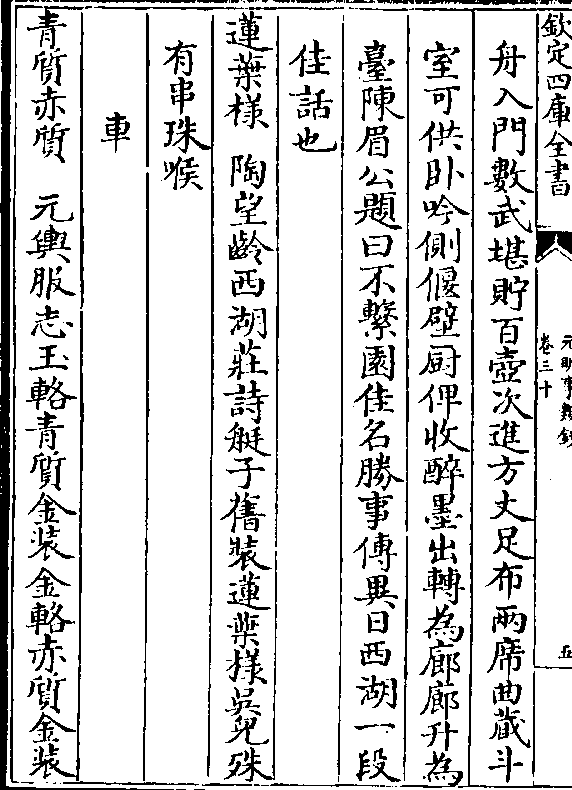 欽定四庫全書
元明事類鈔
卷三十
五
舟入門數武堪貯百壺次進方丈足布兩席曲藏斗
室可供卧吟側偃壁厨俾收醉墨出轉為廊廊升為
臺陳眉公題曰不繫園佳名勝事傳異日西湖一段
佳話也
蓮葉様　陶望齡西湖莊詩艇子舊裝蓮葉様吳兒殊
有串珠喉
車
青質赤質　元輿服志玉輅青質金装金輅赤質金装